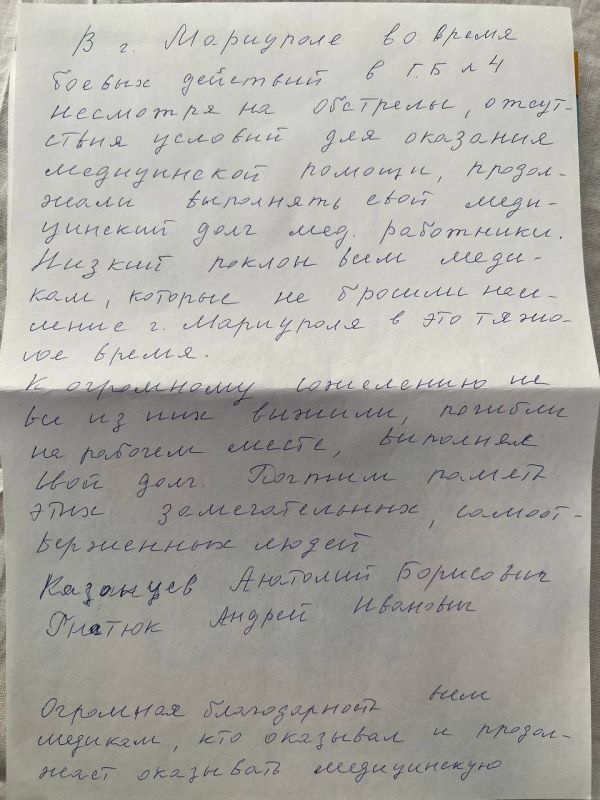 В г. Мариуполе во время
боевых действий в Г.Б л 4
несмотря на обстрелы, отсут-
ствия условий для оказания
медицинской помощи, продол-
жали выполнять свой меди-
цинский долг мед. работники.
Низкий поклон всем меди-
кам, которые не бросили насе-
ление г. Мариуполя в это тяжо-
лое время.
К огромному сожелению не
все из них выжили, погибли
на рабочем месте, выполняя
свой долг. Почтим память
этих замечательных, самоот-
верженных людей
Казанцев Анатолий Борисович
Гнатюк Андрей Иванович
Огромная благодарность
медикам, кто оказывал и продол-
жает оказывать медицинскую